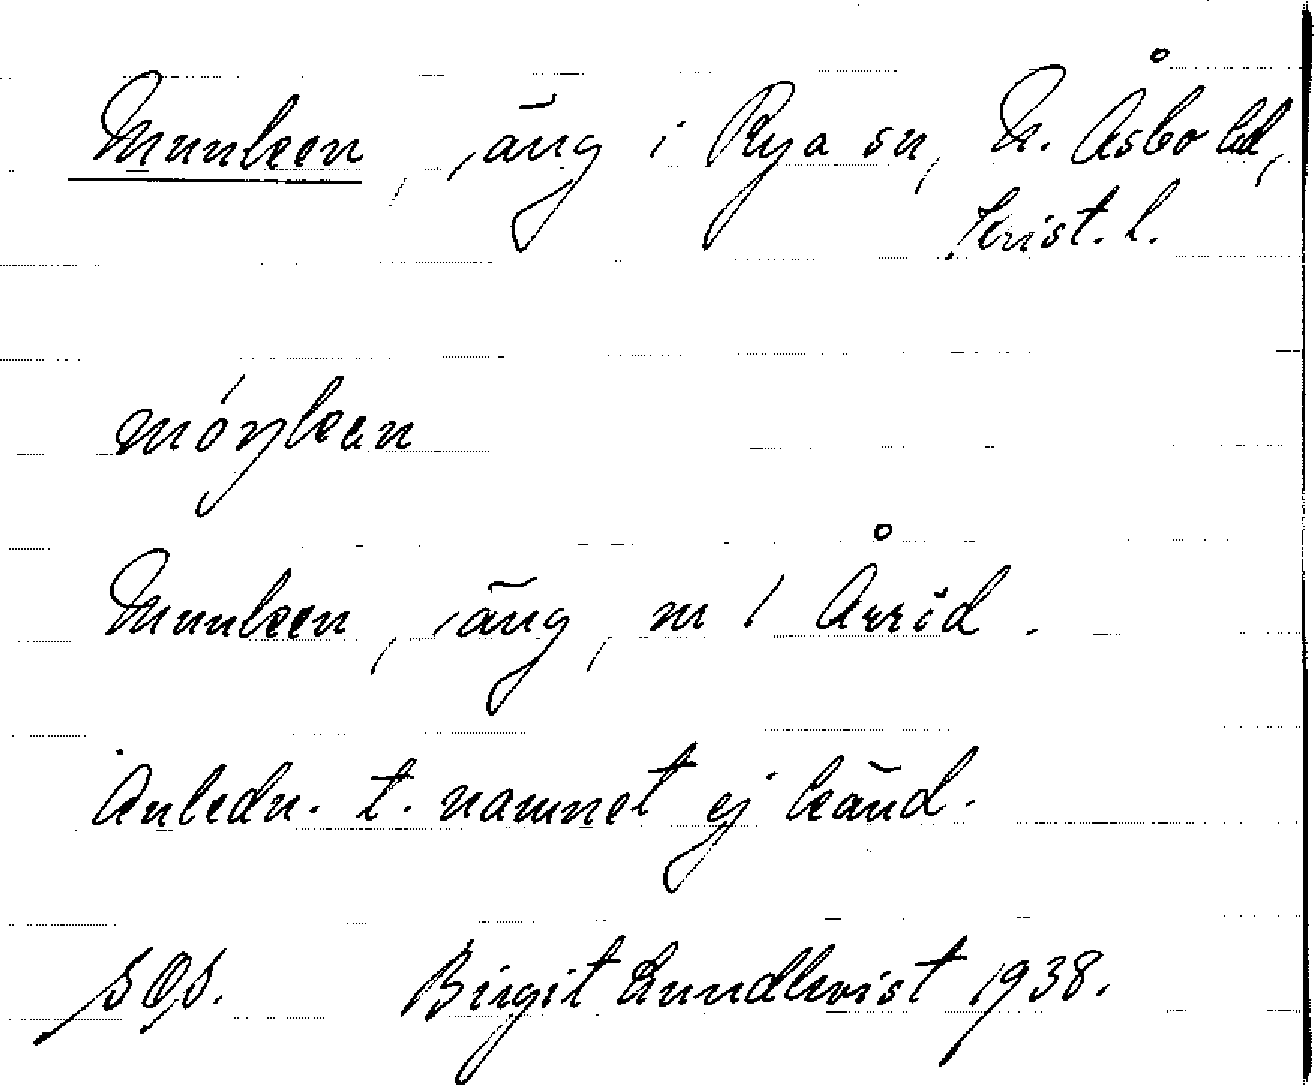 Munken, äng i Rya sn, N. Åsbo hd,
Krist. l.
móŋkan
Munken, äng, nr 1 Årröd.
Anledn. t. namnet ej känd.
Birgit Lundkvist 1938.